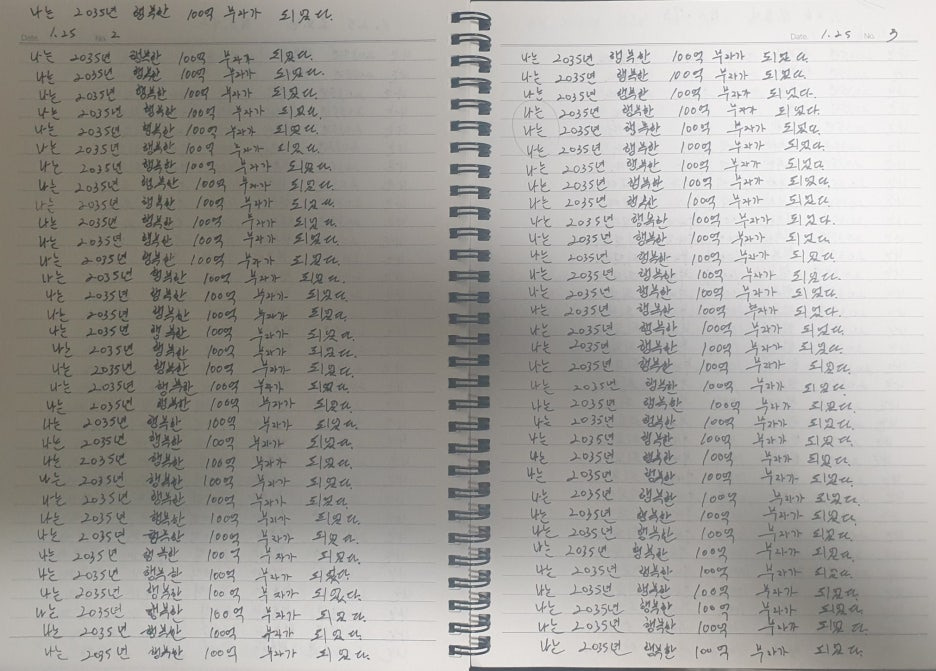 나는 2035년 행복한 100억 부자가 되었다.
Date. 1.25 No. 2
나는 2035년 행복한 100억 부자가 되었다.
나는 2035년 행복한 100억 부자가 되었다.
나는 2035년 행복한 100억 부자가 되었다.
나는 2035년 행복한 100억 부자가 되었다.
나는 2035년 행복한 100억 부자가 되었다.
나는 2035년 행복한 100억 부자가 되었다.
나는 2035년 행복한 100억 부자가 되었다.
나는 2035년 행복한 100억 부자가 되었다.
나는 2035년 행복한 100억 부자가 되었다.
나는 2035년 행복한 100억 부자가 되었다.
나는 2035년 행복한 100억 부자가 되었다.
나는 2035년 행복한 100억 부자가 되었다.
나는 2035년 행복한 100억 부자가 되었다.
나는 2035년 행복한 100억 부자가 되었다.
나는 2035년 행복한 100억 부자가 되었다.
나는 2035년 행복한 100억 부자가 되었다.
나는 2035년 행복한 100억 부자가 되었다.
나는 2035년 행복한 100억 부자가 되었다.
나는 2035년 행복한 100억 부자가 되었다.
나는 2035년 행복한 100억 부자가 되었다.
나는 2035년 행복한 100억 부자가 되었다.
나는 2035년 행복한 100억 부자가 되었다.
나는 2035년 행복한 100억 부자가 되었다.
나는 2035년 행복한 100억 부자가 되었다.
나는 2035년 행복한 100억 부자가 되었다.
나는 2035년 행복한 100억 부자가 되었다.
나는 2035년 행복한 100억 부자가 되었다.
나는 2035년 행복한 100억 부자가 되었다.
나는 2035년 행복한 100억 부자가 되었다.
나는 2035년 행복한 100억 부자가 되었다.
나는 2035년 행복한 100억 부자가 되었다.
나는 2035년 행복한 100억 부자가 되었다.
나는 2035년 행복한 100억 부자가 되었다.
Date. 1.25 No. 3
나는 2035년 행복한 100억 부자가 되었다.
나는 2035년 행복한 100억 부자가 되었다.
나는 2035년 행복한 100억 부자가 되었다.
나는 2035년 행복한 100억 부자가 되었다.
나는 2035년 행복한 100억 부자가 되었다.
나는 2035년 행복한 100억 부자가 되었다.
나는 2035년 행복한 100억 부자가 되었다.
나는 2035년 행복한 100억 부자가 되었다.
나는 2035년 행복한 100억 부자가 되었다.
나는 2035년 행복한 100억 부자가 되었다.
나는 2035년 행복한 100억 부자가 되었다.
나는 2035년 행복한 100억 부자가 되었다.
나는 2035년 행복한 100억 부자가 되었다.
나는 2035년 행복한 100억 부자가 되었다.
나는 2035년 행복한 100억 부자가 되었다.
나는 2035년 행복한 100억 부자가 되었다.
나는 2035년 행복한 100억 부자가 되었다.
나는 2035년 행복한 100억 부자가 되었다.
나는 2035년 행복한 100억 부자가 되었다.
나는 2035년 행복한 100억 부자가 되었다.
나는 2035년 행복한 100억 부자가 되었다.
나는 2035년 행복한 100억 부자가 되었다.
나는 2035년 행복한 100억 부자가 되었다.
나는 2035년 행복한 100억 부자가 되었다.
나는 2035년 행복한 100억 부자가 되었다.
나는 2035년 행복한 100억 부자가 되었다.
나는 2035년 행복한 100억 부자가 되었다.
나는 2035년 행복한 100억 부자가 되었다.
나는 2035년 행복한 100억 부자가 되었다.
나는 2035년 행복한 100억 부자가 되었다.
나는 2035년 행복한 100억 부자가 되었다.
나는 2035년 행복한 100억 부자가 되었다.
나는 2035년 행복한 100억 부자가 되었다.